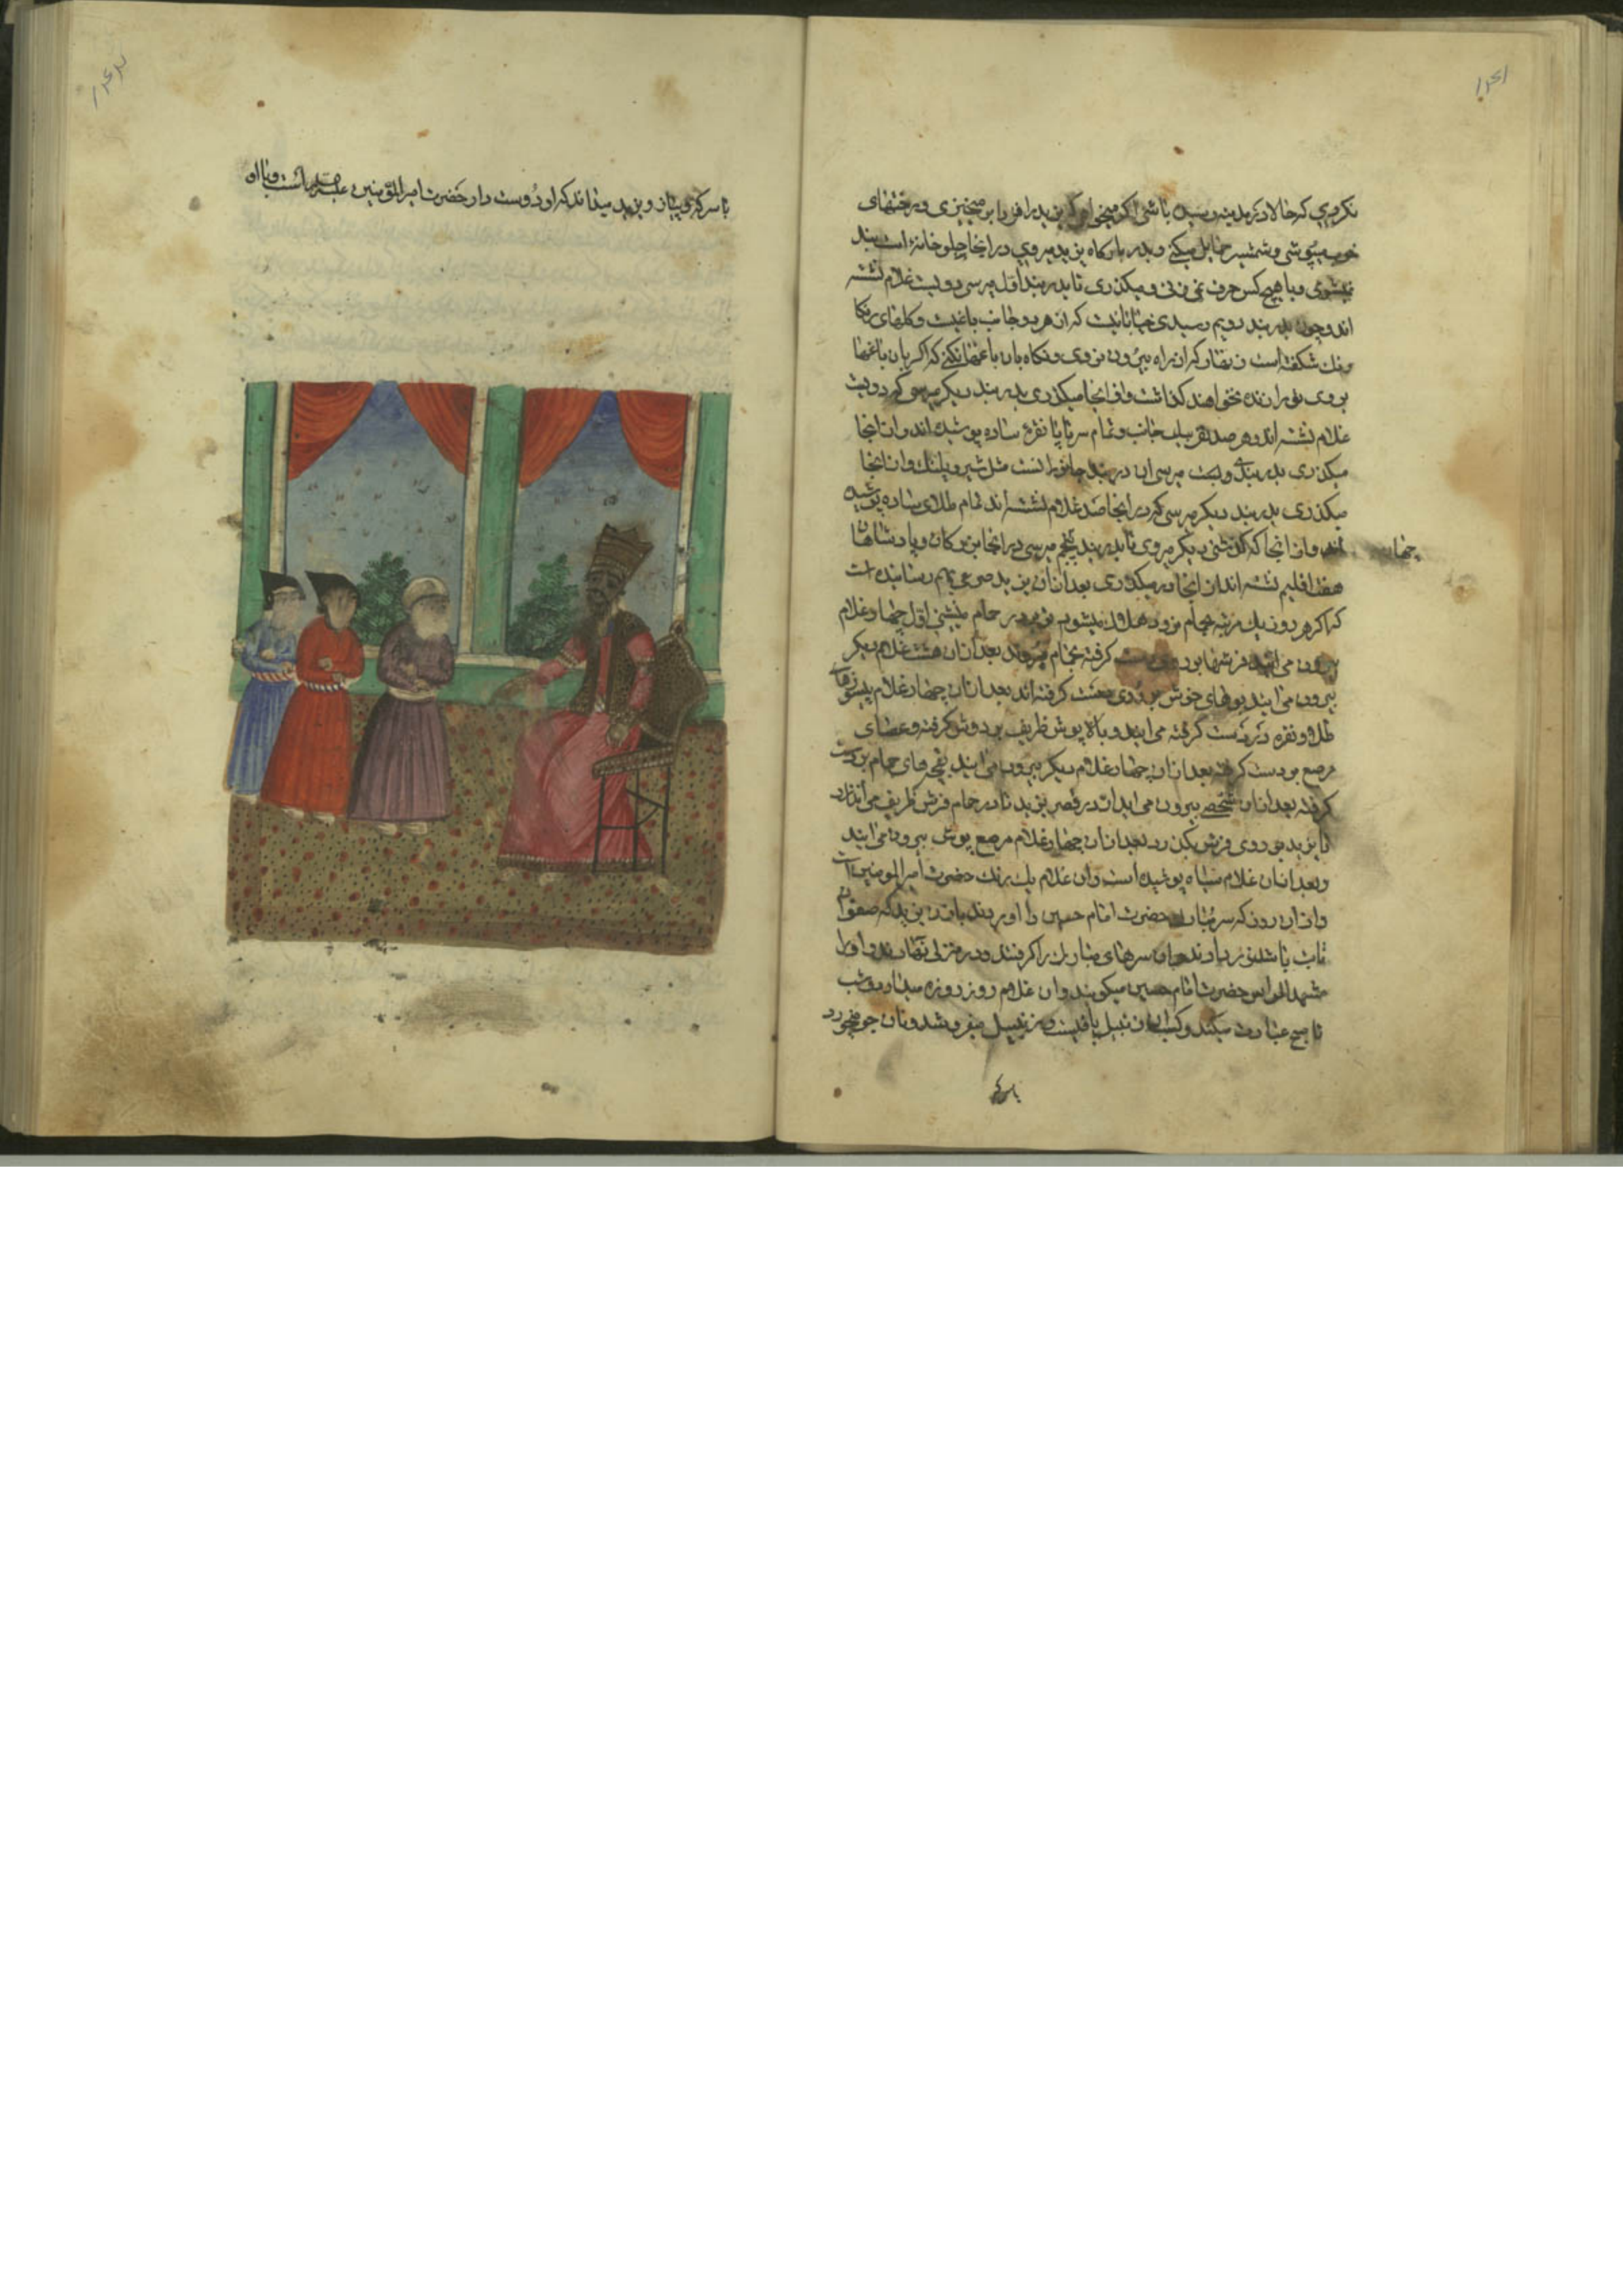 نکردي که حالا در مدینه رسیده باشی اگر میخواهی که یزید را فردا بر میخیزی و رختهای
خوب میپوشی و شمشیر حمایل میکنی و بدربارکاه یزید میروی در انجا جلو خانهٔ است بند
نمیشوی و با هیچ کس حرف نمی زنی و میکذری تا بدربند اول میرسی دویست غلام نشسته
اند و چون بدربند دویم رسیدی خیابانیست که از هر دو جانب باغیست و کلهای رنکا
رنك شکفته است زینهار که از راه بیرون نروی و نکاه بان باغها نکنی که اکر بان باغها
بروی تو را زنده نخواهند کذاشت و از انجا میکذری بدربند دیکر میرسی که دویست
غلام نشسته اند و هر صد نفر بیك جانب و تمام سرتاپا نقرهٔ ساده پوشیده اند و از انجا
میکذری بدربند میرسی ان دربند جانورانست مثل شیر و پلنك و از انجا
میکذری بدربند دیکر میرسی که در انجا صد غلام نشسته اند تمام طلای ساده پوشیده
اند و از انجا که کذشتی دیکر میروی تا بدربند پنجم میرسی در انجا بزرکان و پادشاهان
چهار
هفت اقلیم نشسته اند از انجا در میکذری بعد ازان یزید بهم رسانیده است
که اکر هر روز یك مرتبه بحمام نرود هلاك میشود تو بر در حمام بنشین اول چهار غلام
بیرون می ایند فرشها بر روی دست کرفته بحمام میبرند بعد ازان هشت غلام دیکر
بیرون می ایند بوهای خوش بر روی دست کرفته اند بعد ازان چهار غلام پیسوزهای
طلا و نقره در دست کرفته می ایند و بالاپوش ظریف بر دوش کرفته و عصای
مرصع بر دست کرفته بعد ازان چهار غلام دیکر بیرون می ایند بقچهای حمام بر دست
کرفته بعد ازان شخصی بیرون می اید از در قصر یزید تا در حمام فرش ظریف می اندازد
تا یزید بر روی فرش بکذرد بعد ازان چهار غلام مرصع پوش بیرون می ایند
و بعد ازان غلام سیاه پوشیده است و ان غلام یك رنك حضرت امیر المومنین است
و از ان روز که سر مبارك حضرت امام حسین را اوردند بافتن یزید که صفوان
تاب نیاورد ان سرهای مبارك را کرفتند و در منزلی نهادند و او را
مشهد الراس حضرت امام حسین میکویند و ان غلام روز روزه میدارد و شب
تا صبح عبادت میکند و کسب او زنبیل بافیست و زنبیل میفروشد و نان جو میخورد
با سرکه
با سرکه و پیاز و یزید میداند که او دوست دار حضرت امیر المؤمنین علیه است و با او